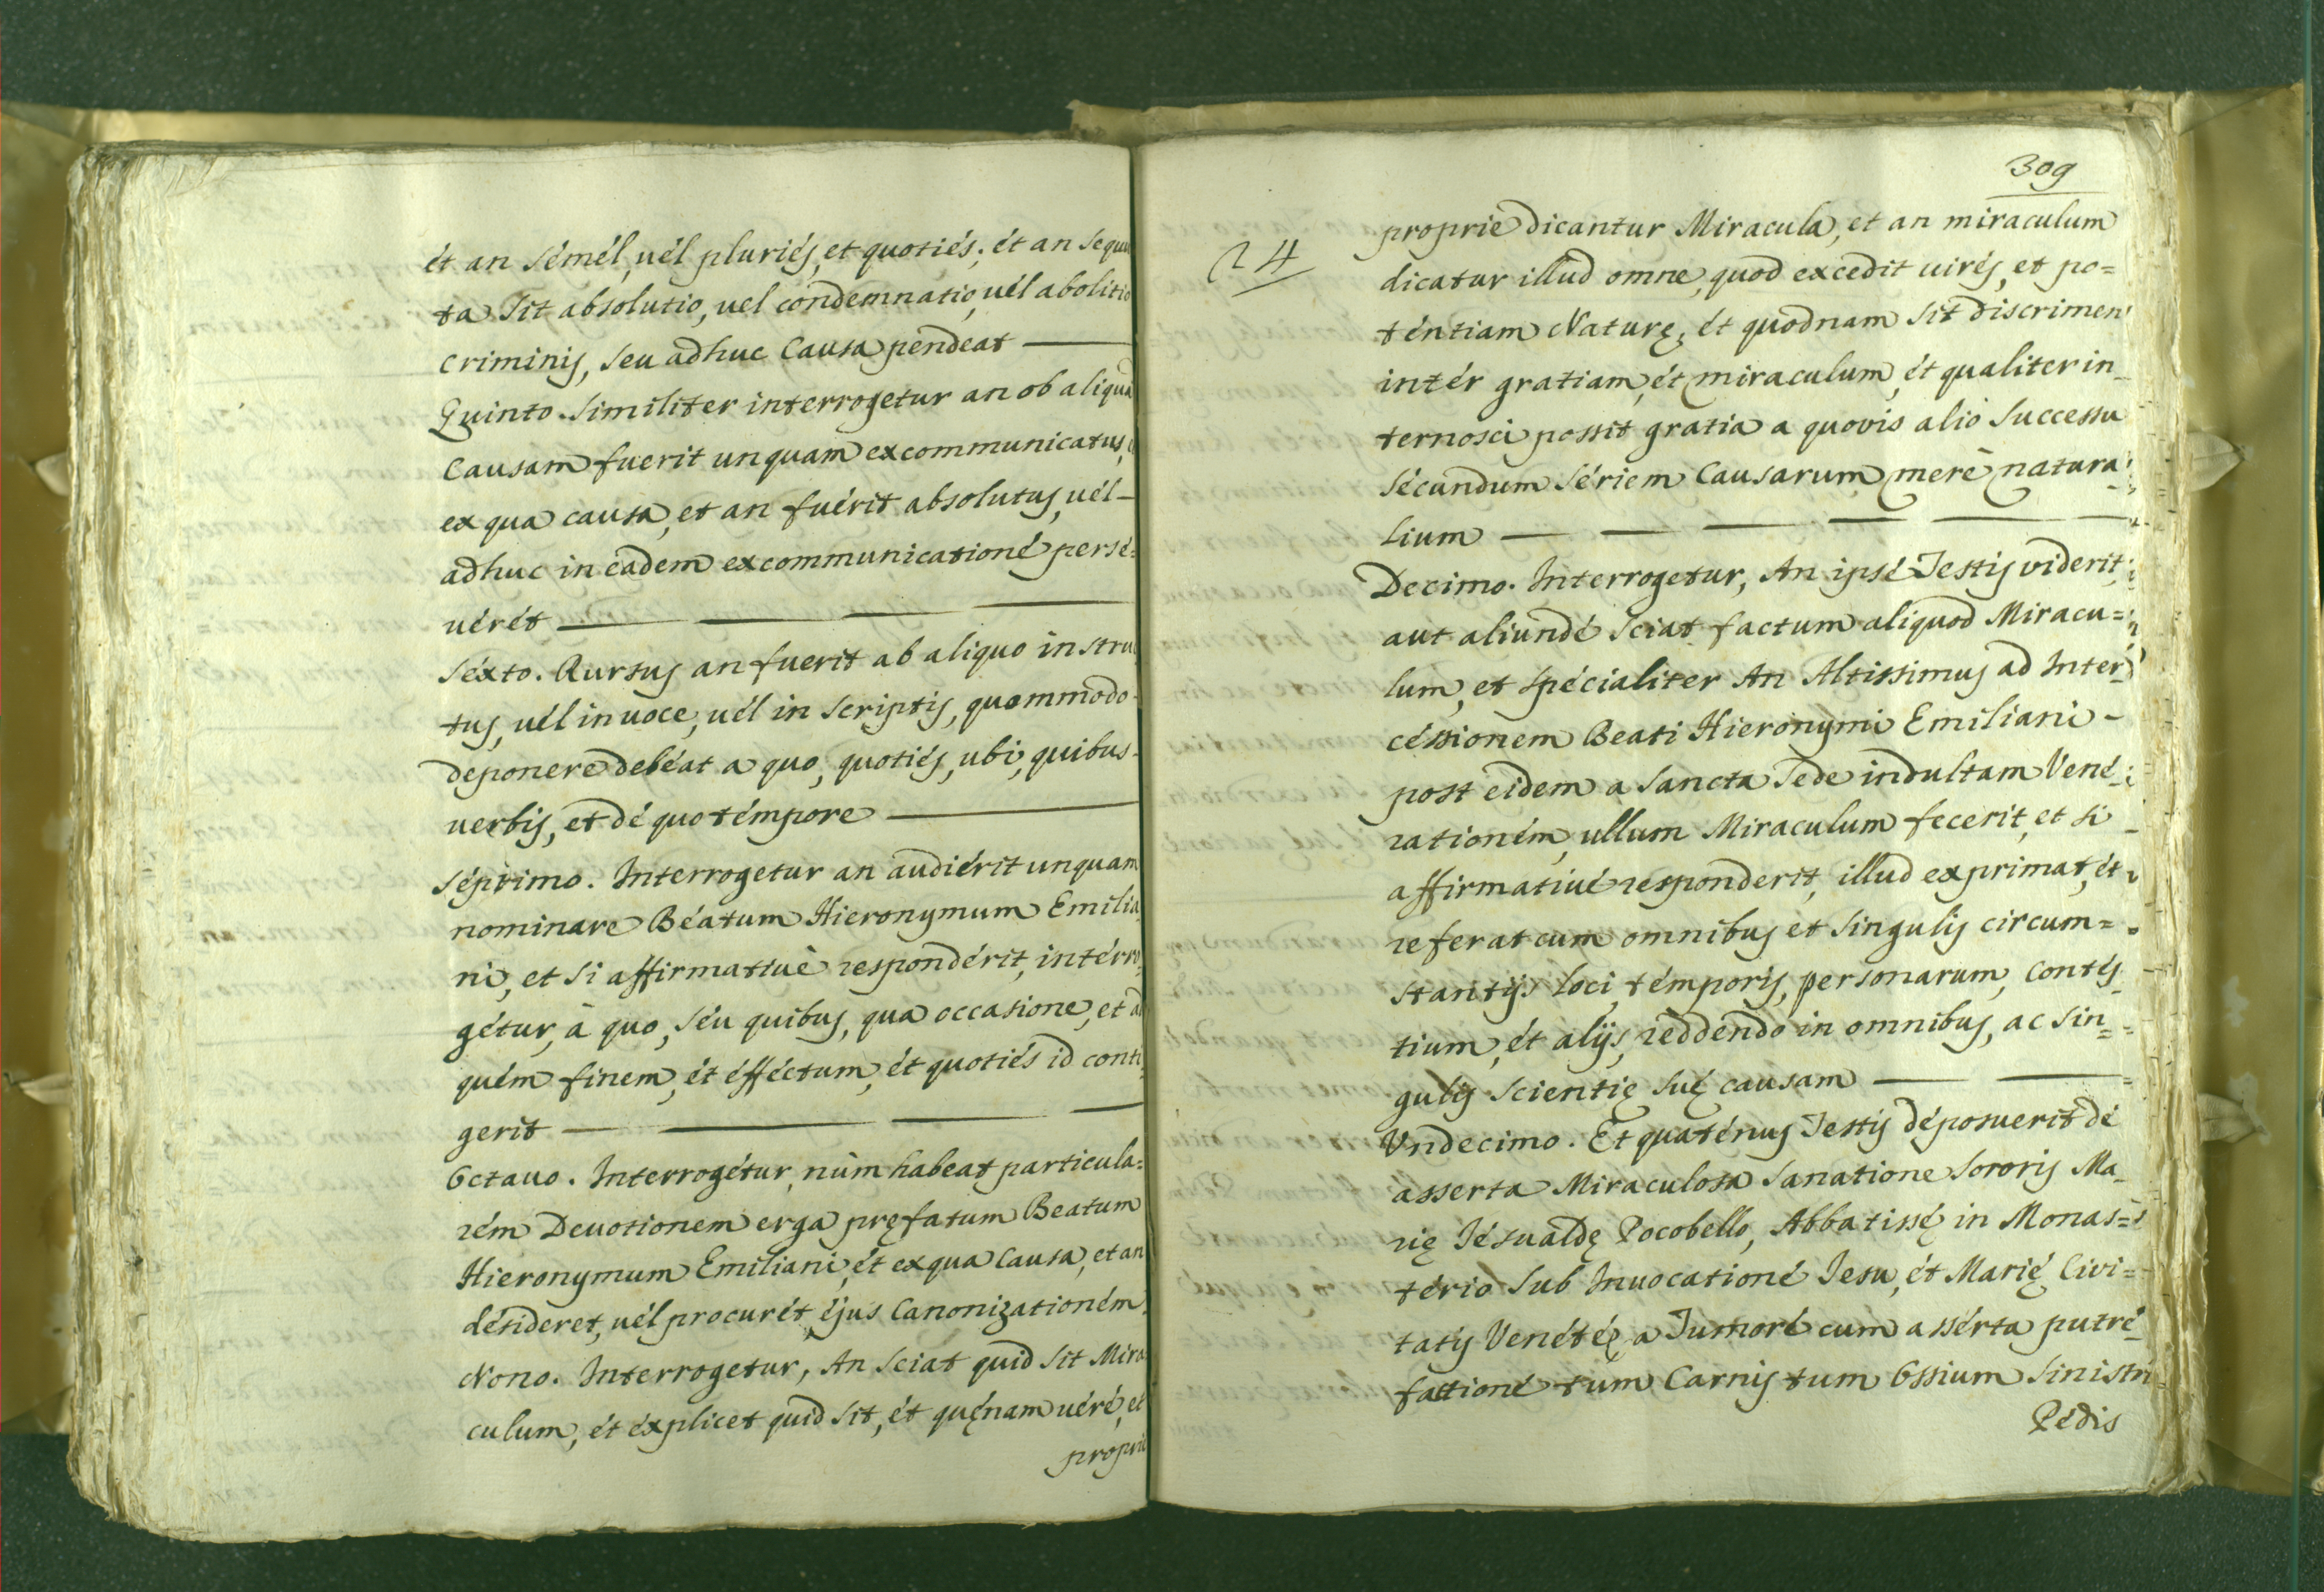 ét an sémél, uél pluriés, et quotiés; ét an sequu
ta sit absolutio, uel condemnatio, uél abolitio
criminis, seu adhuc Causa pendeat
Quinto. Similiter interrogetur an ob aliquã
Causam fuerit unquam excommunicatus,
ex qua causa, et an fuérit absolutus, uél
adhuc in eadem excommunicationé persé=
uérét
Séxto. Rursus an fuerit ab aliquo instru
tus, uél in uoce, uél in scriptis, quommodo
deponere debéat a quo, quotiés, ubi, quibus
uerbis, et dé quo témpore
Séptimo. Interrogetur an audiérit unquam
nominare Béatum Hieronymum Emilia
ni, et si affirmatiuè respondérit, intérro
gétur, à quo, séu quibus, qua occasione, et ad
quém finem, ét éfféctum, ét quotiés id conti
gerit
Octauo. Interrogétur, nùm habeat particula=
rém Deuotionem erga pręfatum Beatum
Hieronymum Emiliani, ét ex qua Causa, et an
désideret, uél procurét éjus Canonizationém.
Nono. Interrogetur, An sciat quid sit Mira
culum, ét éxplicet quid sit, ét quęnam uéré, et
proprie
309
24
proprie dicantur Miracula, et an miraculum
dicatur illud omne, quod excedit uirés, et po=
téntiam Naturę, ét quodnam sit discrimen
intér gratiam, ét miraculum, ét qualiter in_
ternosci possit gratia a quovis alio successu
sécundum sériem Causarum merè natura
lium
Decimo. Interrogetur, An ipsé Testis viderit,
aut aliundé sciat factum aliquod Miracu=
lum, et spécialiter An Altissimus ad Inter
céssionem Beati Hieronymi Emiliani
post eidem a Sancta Sede indultam Vené
rationém, ullum Miraculum fecerit, et si
affirmatiué responderit, illud exprimat, ét
referat cum omnibus et singulis circum=
stantijs loci, témporis, personarum, Contés
tium, ét alijs, reddéndo in omnibus, ac sin
gulis scientię suę causam
Vndecimo. Et quaténus Testis déposuerit dé
asserta Miraculosa Sanatione Sororis Ma_
rię Jésualdę Pocobello, Abbatissę in Monas=
tério sub Inuocationé Jesu, ét Marię Civi=
tatis Venétę, a Tumoré cum assérta putré
factioné tum Carnis tum Ossium sinistri
Pédis